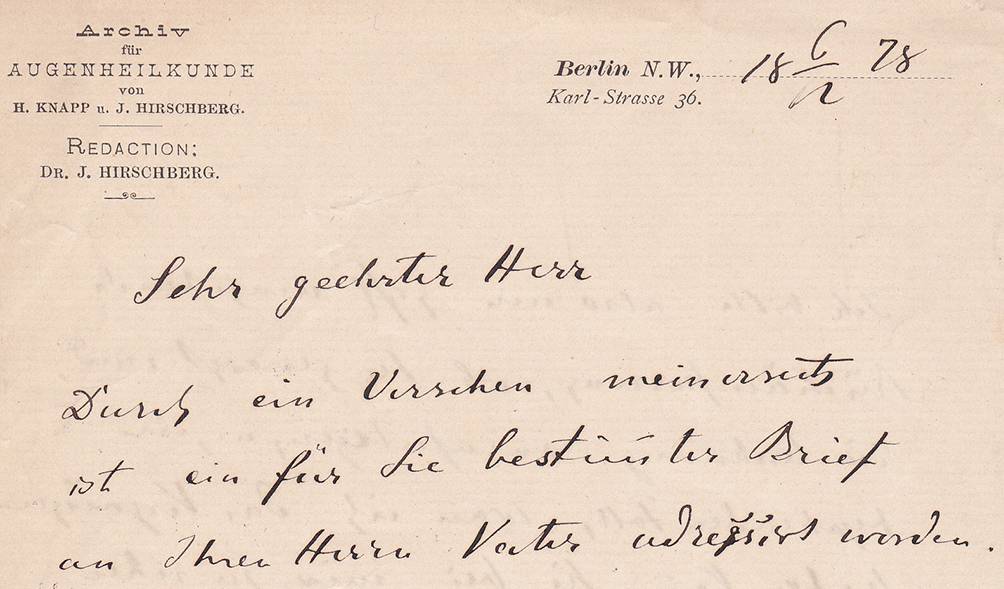 Archiv
für
AUGENHEILKUNDE
von
H. KNAPP u. J. HIRSCHBERG.
REDACTION:
DR. J. HIRSCHBERG.
Berlin N.W., 18 6/12 78
Karl-Strasse 36.
Sehr geehrter Herr
Durch ein Versehen meinerseits
ist ein für Sie bestim̅ter Brief
an Ihren Herrn Vater adressirt worden.